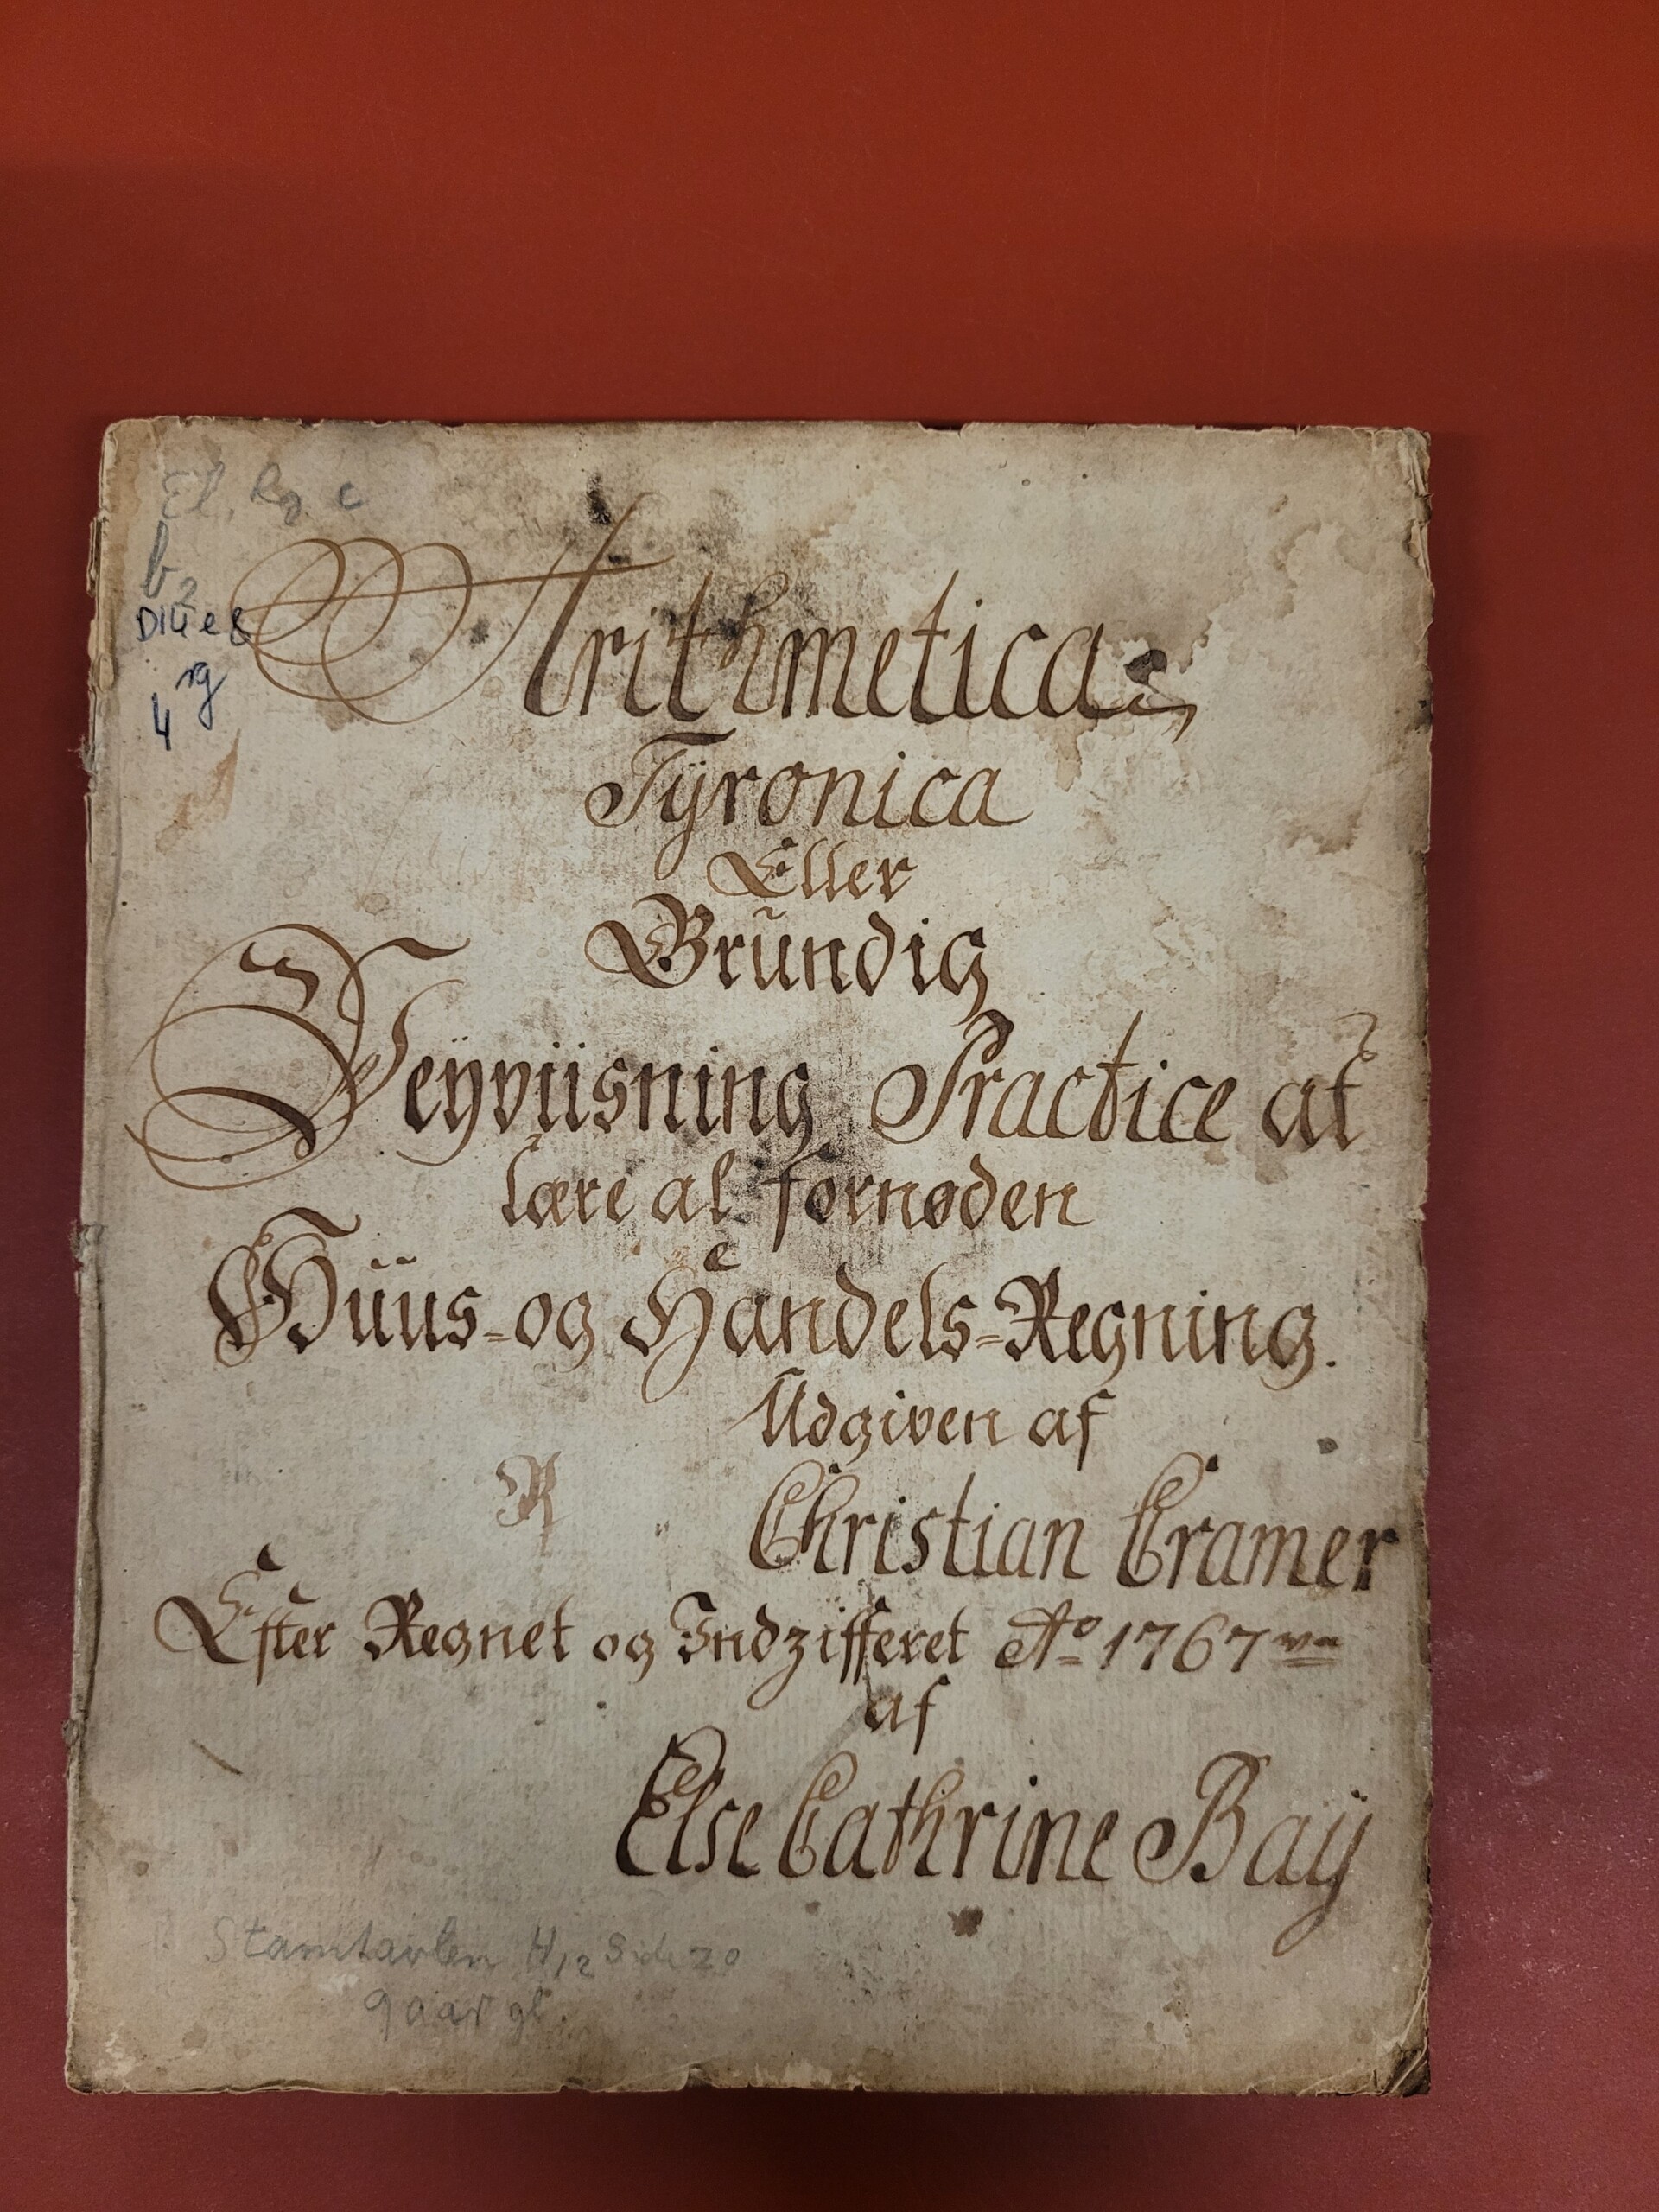 b 2
D14 e 8
rg
4
Arithmetica
Tÿronica
Eller
Grŭndig
Veÿviisning Practice at
lære al fornøden
Hüus-og Handels-Regning.
Udgiven af
R
Christian Cramer
Efter Regnet og Indzifferet Aº 1767
af
Else Cathrine Baÿ
Stamtavlen H,2 Side 20
9 aar gl.